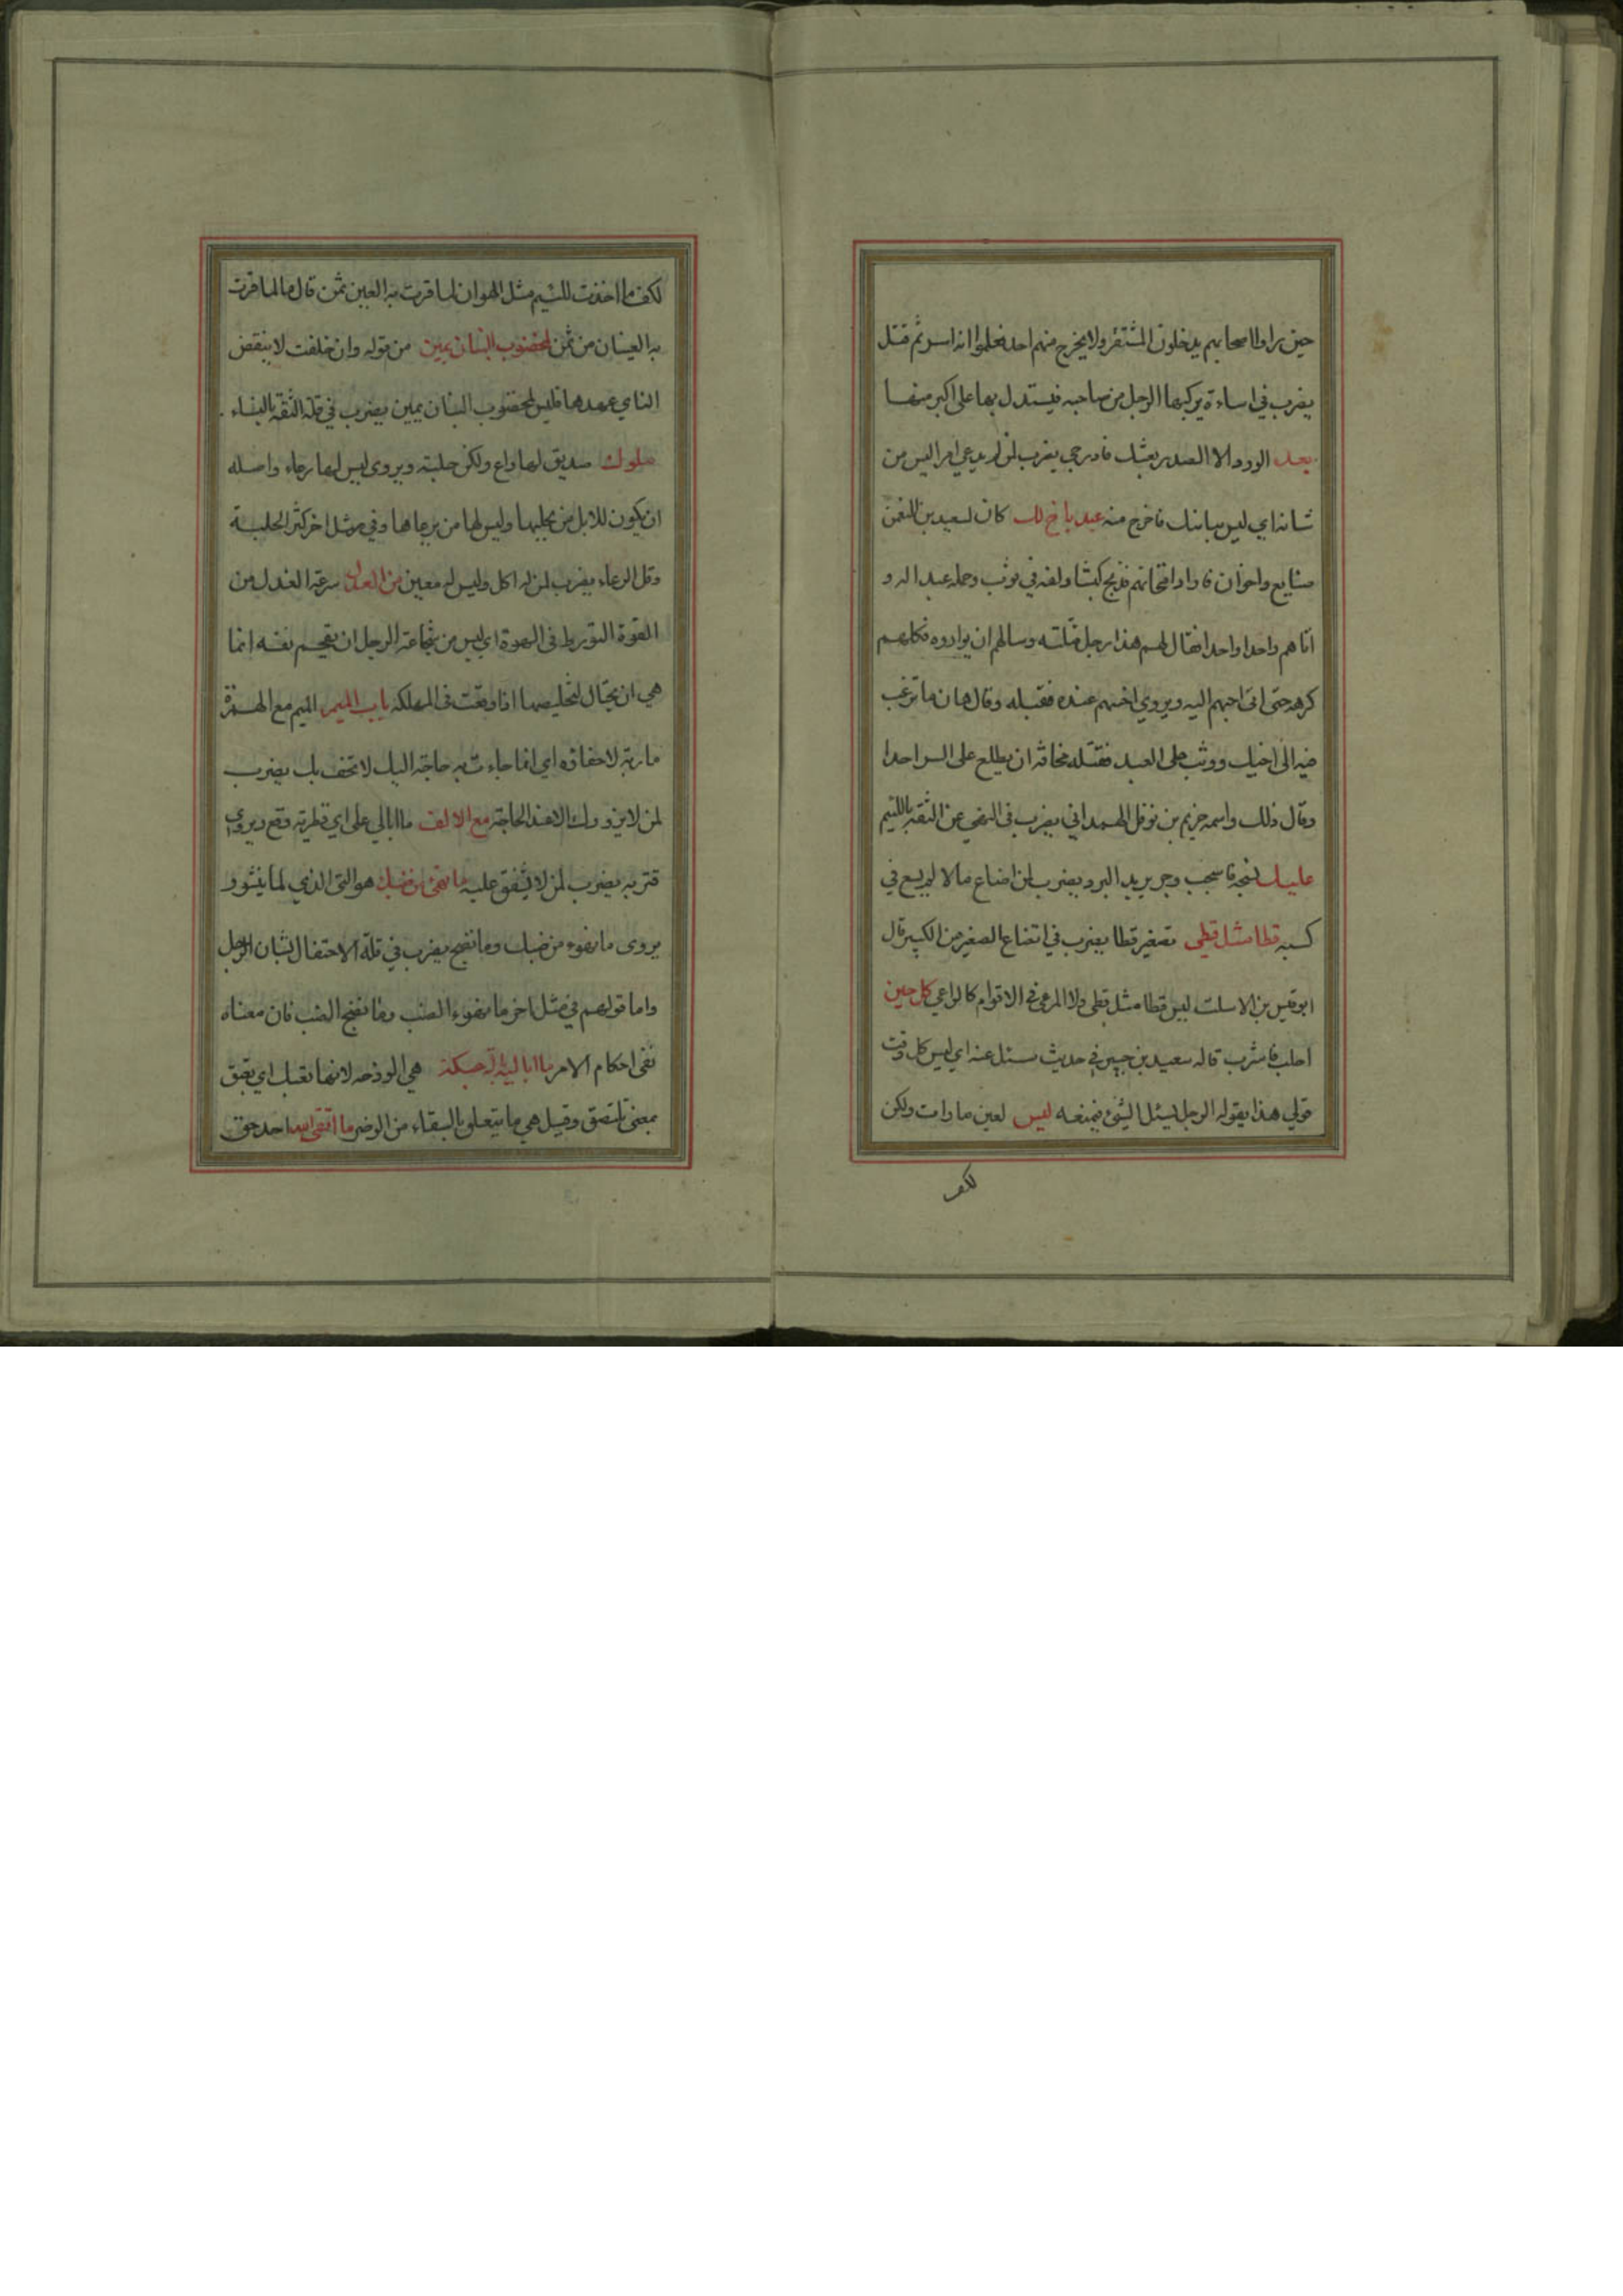 حين راوا اصحابهم يدخلون المشقر ولا يخرج منهم احد فعلموا انه اسر ثم قتل
يضرب في اساءة يركبها الرجل من صاحبه فيستدل بها على اكبر منها
بعد الورد الا الصدر يضرب لمن يدعي امرا ليس من
شانه اي ليس بيانك فاخرج منه عبد باخ لك كان لسعيد بن النعمن
مشايع واخوان فاراد امتحانهم فذبح كبشا ولفه في ثوب وحمله عبد اله و
اتاهم واحدا واحدا فقال لهم هذا رجل قتلته وسالهم ان يواروه فكلهم
كرهه حتى اتى احبهم اليه ويروى اخسهم عنده فقبله وقال هان ما ترغب
فيه الى اخيك ووثب على العبد فقتله مخافة ان يطلع على السر احدا
وقال ذلك واسمه خزيم بن نوفل الهمداني يضرب في النهي عن الثقة باللئيم
عليك نسجه فاسحب وجر يريد البرد يضرب لمن اضاع مالا لم يسع في
كسبه قطا مثل قطى تصغير قطا يضرب في اتضاع الصغير من الكبير قال
ابو قيس بن الاسلت ليس قطا مثل قطى ولا المرعي في الاقوام كالراعي كل حين
احلب فاشرب قاله سعيد بن جبير في حديث سئل عنه اي ليس كل وقت
قولي هذا يقوله الرجل ليسئل الشئ فيمنعه ليس لعين ما رات ولكن
لكف
لكف ما اخذت للئيم مثل الهوان لما قرت به العين ثمن قال ما لما قرت
به العينان من ثمن لمخضوب البنان يمين من قوله وان خلفت لا ينقض
الناي عهدها فليس لمخضوب البنان يمين يضرب في قلة الثقة بالنساء
ملوك صديق لها داع ولكن حلبته ويروى ليس لها رعاء واصله
ان يكون للابل من يحلبها وليس لها من يرعاها وفي مثل اخر كثر الحلبة
وقل الرعاء يضرب لمن له اكل وليس له معين من العدل سرعة العذل من
القوة التورط في الهوة اي ليس من شجاعة الرجل ان يقحم نفسه انما
هي ان يحتال لتخليصها اذا وقعت في المهلكة باب الميم الميم مع الهمزة
ماربة لا حفاوة اي انما جاءت به حاجته اليك لا تحف بك يضرب
لمن لا يزورك الا عند الحاجة مع الالف ما ابالي على اي قطريه وقع ويروى
قتريه يضرب لمن لا يشفق عليه ما نهئ من ضبك هو النئ الذي لما ينشو و
يروى ما نهوء من ضبك وما نضج يضرب في قلة الاحتفال بشان الرجل
واما قولهم في مثل اخر ما نهوء الضب وما نضج الضب فان معناه
نفى احكام الامر ما اباليه عبكة هي الوذحه لانها تعبك اي تعبق
بمعنى تلتصق وقيل هي ما يتعلق بالسقاء من الوضر ما اتقى الله احد حق